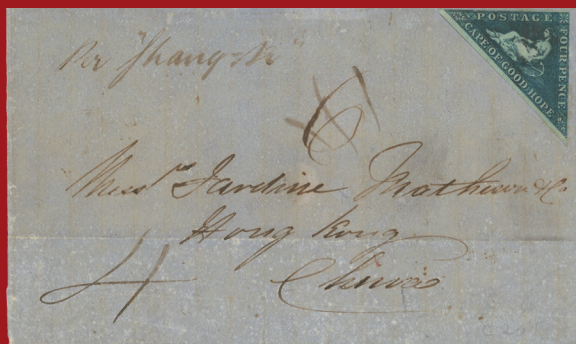 POSTAGE
FOUR PENCE
CAPE OF GOOD HOPE
Per "Shang-
6
Messrs Jardine Matheson & Co
Hong Kong
China
4